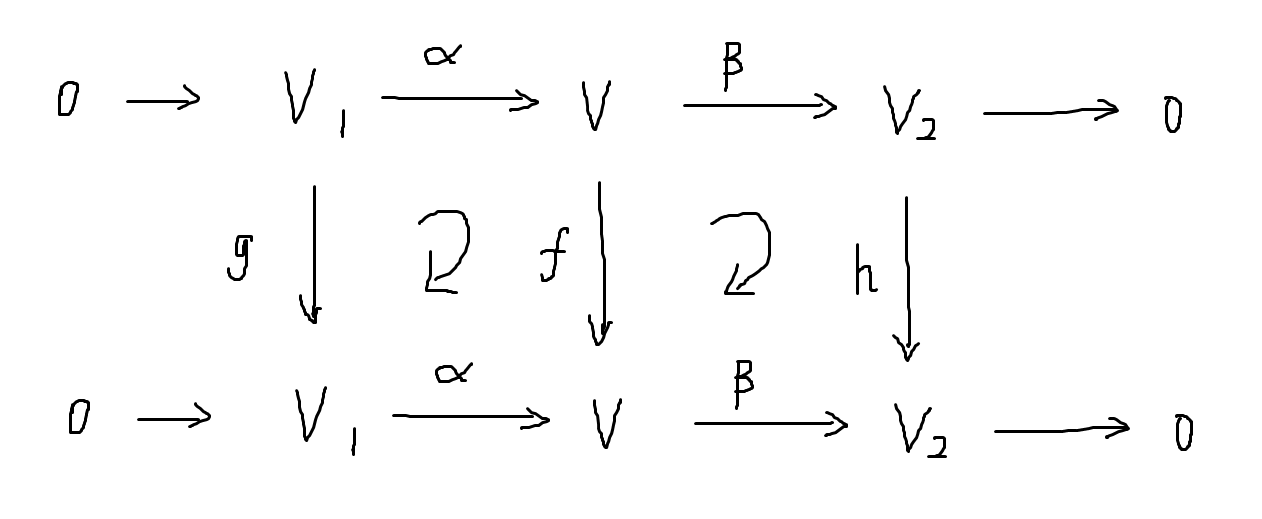 α β
0 → V₁ → V → V₂ → 0
g f h
α β
0 → V₁ → V → V₂ → 0